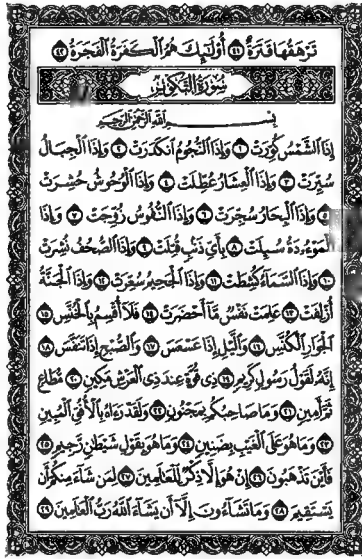 تَرْهَقُهَا قَتَرَةٌ ٤١ أُوْلَٰٓئِكَ هُمُ الْكَفَرَةُ الْفَجَرَةُ ٤٢
سُورَةُ التَّكْوِيرِ
بِسْمِ اللَّهِ الرَّحْمَٰنِ الرَّحِيمِ
إِذَا الشَّمْسُ كُوِّرَتْ ١ وَإِذَا النُّجُومُ انْكَدَرَتْ ٢ وَإِذَا الْجِبَالُ
سُيِّرَتْ ٣ وَإِذَا الْعِشَارُ عُطِّلَتْ ٤ وَإِذَا الْوُحُوشُ حُشِرَتْ
٥ وَإِذَا الْبِحَارُ سُجِّرَتْ ٦ وَإِذَا النُّفُوسُ زُوِّجَتْ ٧ وَإِذَا
الْمَوْءُۥدَةُ سُئِلَتْ ٨ بِأَيِّ ذَنْبٍ قُتِلَتْ ٩ وَإِذَا الصُّحُفُ نُشِرَتْ
١٠ وَإِذَا السَّمَآءُ كُشِطَتْ ١١ وَإِذَا الْجَحِيمُ سُعِّرَتْ ١٢ وَإِذَا الْجَنَّةُ
أُزْلِفَتْ ١٣ عَلِمَتْ نَفْسٌ مَّآ أَحْضَرَتْ ١٤ فَلَآ أُقْسِمُ بِالْخُنَّسِ ١٥
الْجَوَارِ الْكُنَّسِ ١٦ وَالَّيْلِ إِذَا عَسْعَسَ ١٧ وَالصُّبْحِ إِذَا تَنَفَّسَ ١٨
إِنَّهُۥ لَقَوْلُ رَسُولٍ كَرِيمٍ ١٩ ذِي قُوَّةٍ عِندَ ذِي الْعَرْشِ مَكِينٍ ٢٠ مُّطَاعٍ
ثَمَّ أَمِينٍ ٢١ وَمَا صَاحِبُكُم بِمَجْنُونٍ ٢٢ وَلَقَدْ رَءَاهُ بِالْأُفُقِ الْمُبِينِ
٢٣ وَمَا هُوَ عَلَى الْغَيْبِ بِضَنِينٍ ٢٤ وَمَا هُوَ بِقَوْلِ شَيْطَٰنٍ رَّجِيمٍ ٢٥
فَأَيْنَ تَذْهَبُونَ ٢٦ إِنْ هُوَ إِلَّا ذِكْرٌ لِّلْعَالَمِينَ ٢٧ لِمَن شَآءَ مِنكُمْ أَن
يَسْتَقِيمَ ٢٨ وَمَا تَشَآءُونَ إِلَّآ أَن يَشَآءَ اللَّهُ رَبُّ الْعَالَمِينَ ٢٩